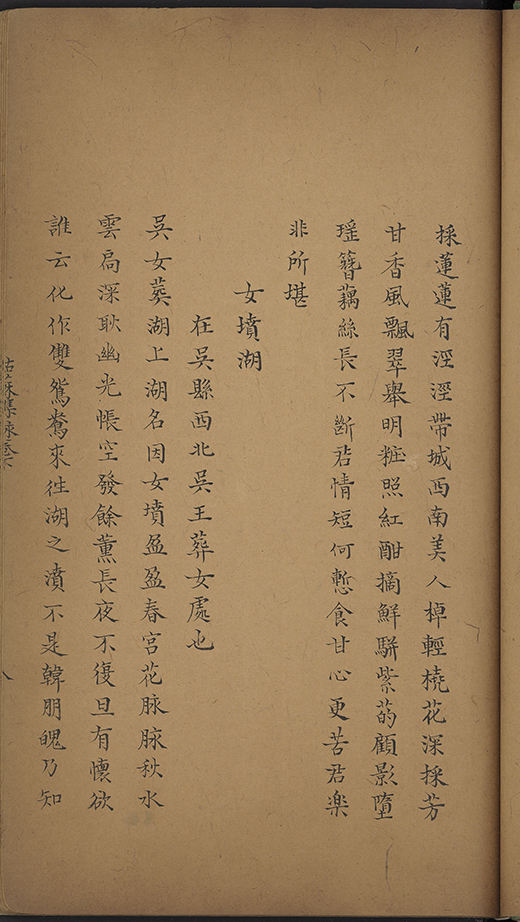 採蓮蓮有涇涇帶城西南美人棹輕橈花深採芳
甘香風飄翠舉明粧照紅酣摘鮮駢紫菂顧影墮
瑶簪藕絲長不斷君情短何慙食甘心更苦君楽
非所堪
女墳湖
在吳縣西北吳王葬女處也
吳女葬湖上湖名因女墳盈盈春宮花脉脉秋水
雲扃深耿幽光帳空發餘薰長夜不復旦有懷欲
誰云化作雙鴛鴦來徃湖之濆不是韓朋魄乃知
姑蘇集詠卷
八